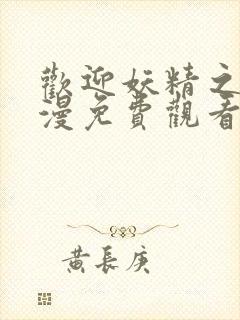 歡迎妖精之
漫免費觀看
黃長庚